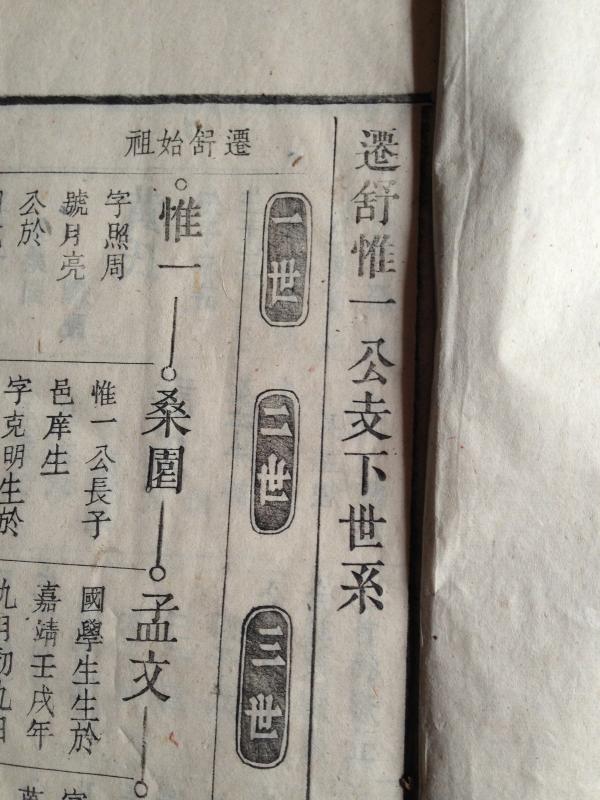 遷舒惟一公支下世系
一世
二世
三世
遷舒始祖
惟一
字照周
號月亮
公於
桑園
惟一公長子
邑庠生
字克明生於
孟文
國學生生於
嘉靖壬戌年
九月初九日